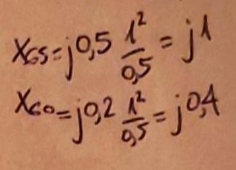 X_GS = j0,5 1²/0,5 = j1
X_G0 = j0,2 1²/0,5 = j0,4